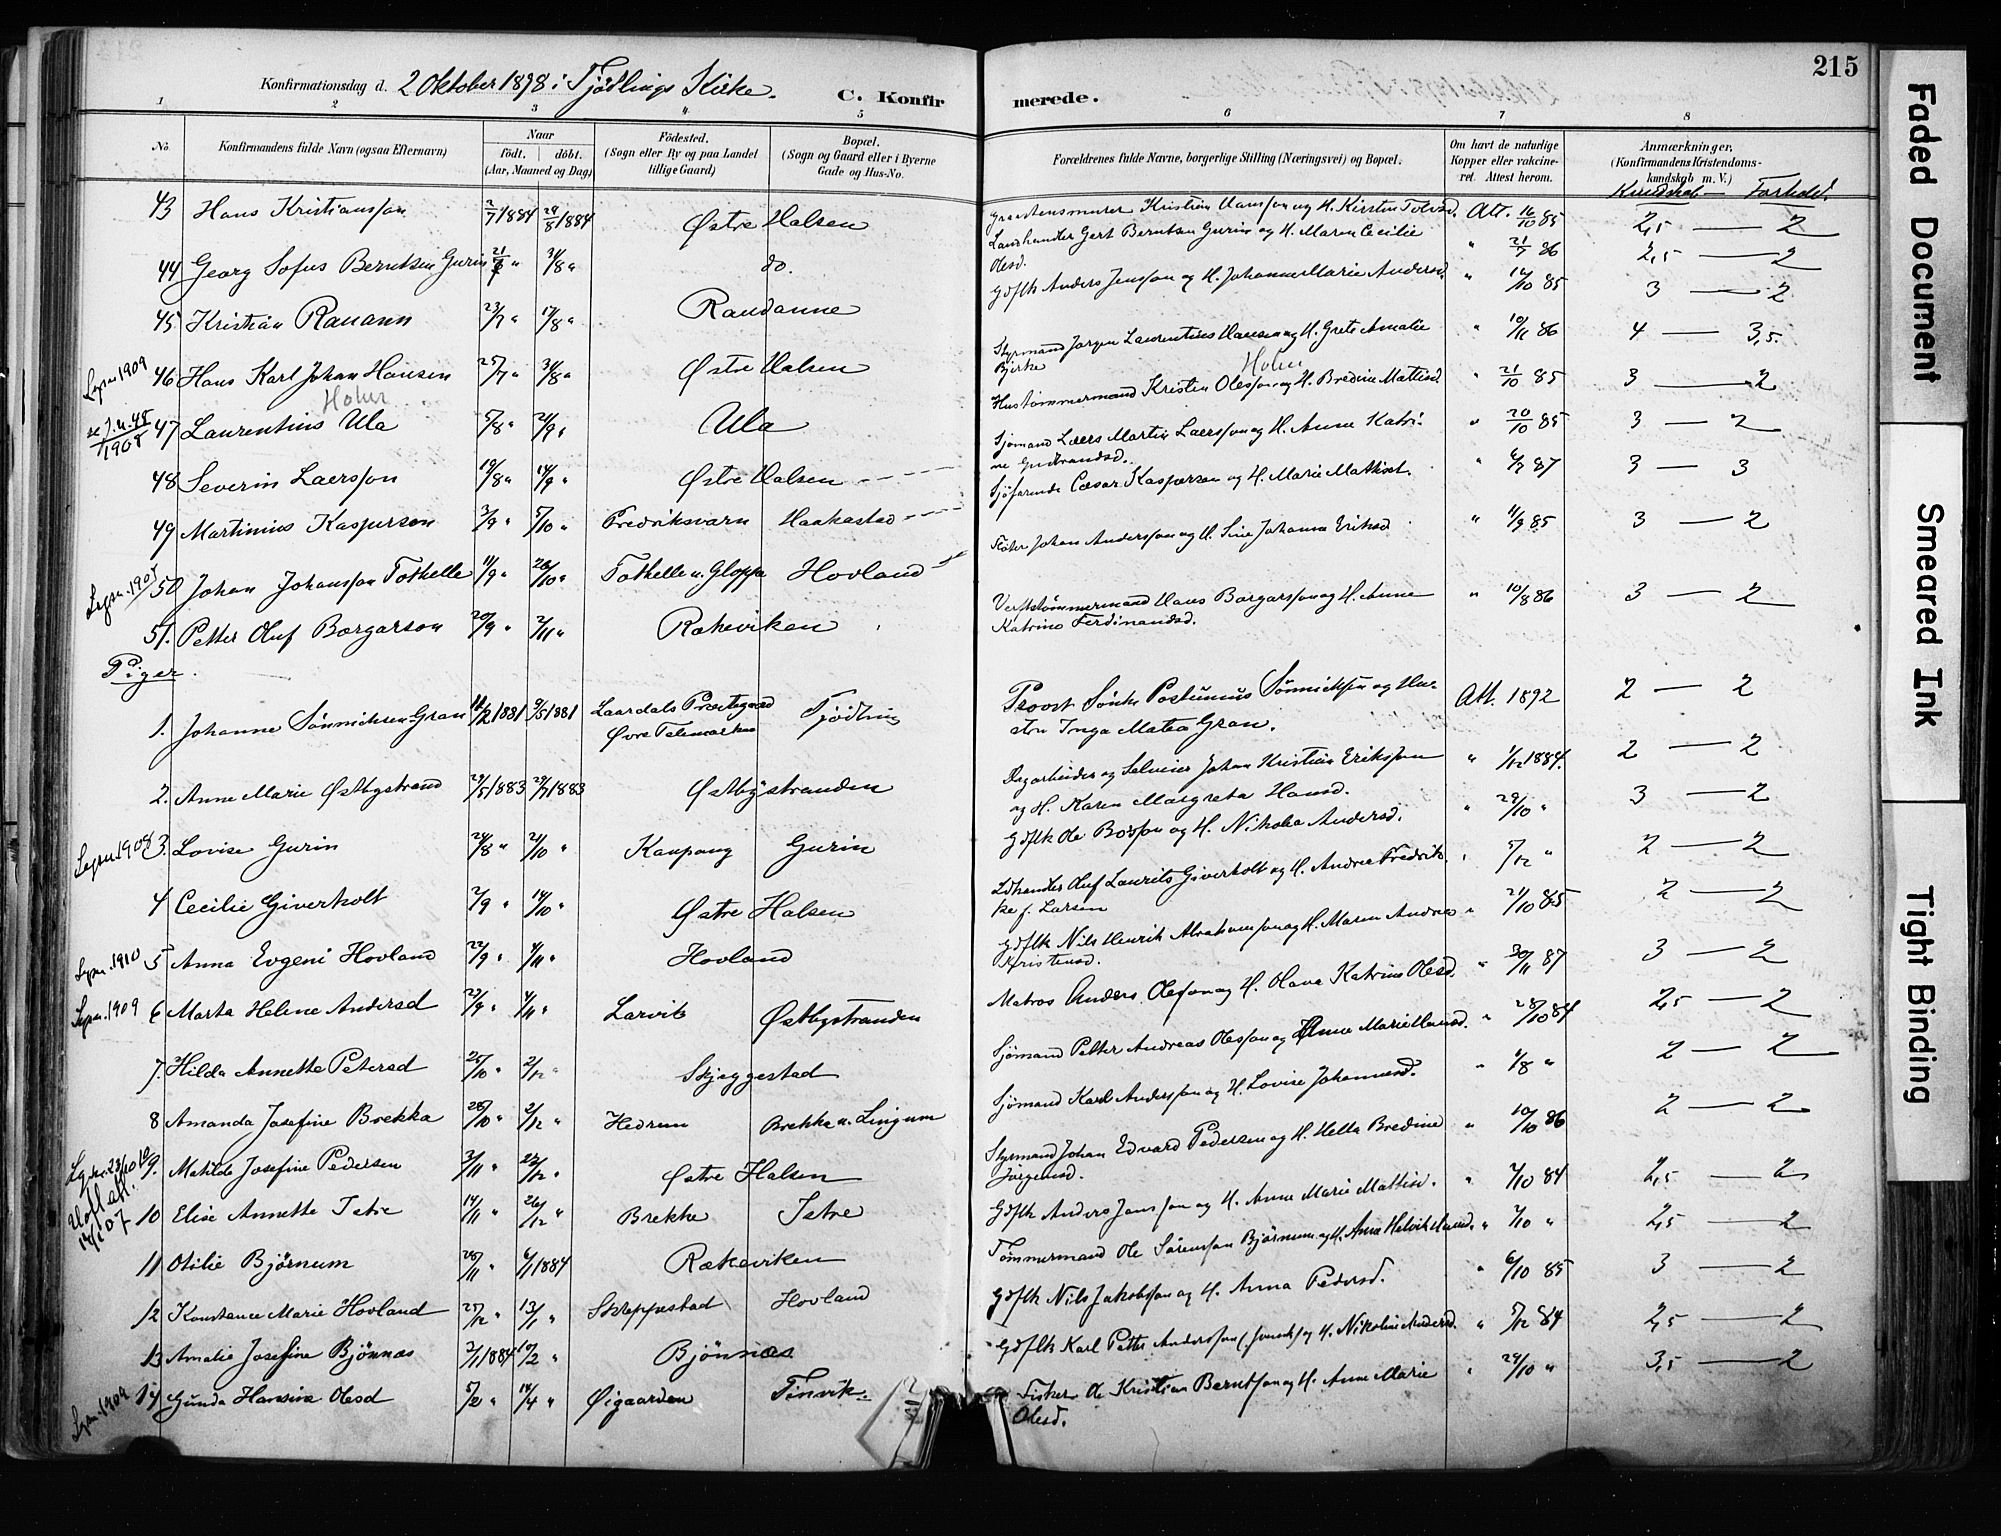 215
Konfirmationsdag d. 2 Oktober 1898 i Tjødlings Kirke.
C. Konfirmerede.
1 2 3 4 5 6 7 8
No.
Konfirmandens fulde Navn (ogsaa Efternavn)
Naar
födt. döbt.
(Aar, Maaned og Dag)
Födested.
(Sogn eller By og paa Landet
tillige Gaard)
Bopæl.
(Sogn og Gaard eller i Byerne
Gade og Hus-No.
Forældrenes fulde Navne, borgerlige Stilling (Næringsvei) og Bopæl.
Om havt de naturlige
Kopper eller vakcine-
ret. Attest herom.
Anmærkninger,
(Konfirmandens Kristendoms-
kundskab m. V.)
Kundskab — Forhold.
43 Hans Kristiansson 2/7 1884 24/8 1884 Østre Halsen Graastensmurer Kristian Hansson og H. Kirsten Att. 16/10 85 2,5 — 2
44 Georg Sofus Berntsen Gurin 31/8 " do. Landhandler Gert Berntsen Gurin og H. Maren Cecilie
Olesd. " 21/7 86 2,5 — 2
45 Kristian Rauann 23/7 " 17/8 " Raudanne Gdflk Anders Jensson og H. Johanne Marie Andersd. " 14/10 85 3 — 2
Lysn. 1909 46 Hans Karl Johan Hansen 25/7 " 31/8 " Østre Halsen Styrmand Jørgen Laurentius Hansen og H. Grete Amalie
Bjerke " 10/11 86 4 — 3,5.
Holm
1908 47 Laurentius Ula 5/8 " 21/9 " Ula Hustømmermand Kristen Olesson og H. Bredine Mattisd. " 21/10 85 3 — 2
Holm
48 Severin Laersson 19/8 " 14/9 " Østre Halsen Sjømand Laers Martin Laersson og H. Anne Katri-
ne Gudbrandsd. " 20/10 85 3 — 2
49 Martinius Kasperson 3/9 " 5/10 " Fredriksvarn Haakastad Sjøfarende Cæsar Kasperson og H. Marie Mattisd. " 6/7 87 3 — 3
Lysn. 1908 50 Johan Johansson Tothelle 11/9 " 26/10 " Tothelle u. Gloppe Hovland Fløter Johan Andersson og H. Sine Johanna Eriksd " 11/9 85 3 — 2
51. Petter Oluf Borgarson 20/9 " 2/11 " Rækeviken Verftstømmermand Hans Borgarsson og H. Anne
Katrine Ferdinandsd. " 10/8 86 3 — 2
Piger.
1. Johanne Sønnichsen Gran 11/2 1881 9/5 1881 Laardals Prestegaard
Øvre Telemarken Tjødling Provst Sønke Postumus Sønnichsen og Hu-
stru Inga Matea Gran. Att. 1892 2 — 2
2. Anne Marie Østbystrand 29/5 1883 29/7 1883 Østbystranden Dagarbeider og Selveier Johan Kristian Eriksson
og H. Karen Margreta Hansd. " 1/12 1884. 2 — 2
Lysn. 1908 3. Lovise Gurin 24/8 " 21/10 " Kaupang Gurin Gdflk Ole Bosson og H. Nikolea Andersd. " 29/10 " 3 — 2
4 Cecilie Giverholt 2/9 " 14/10 " Østre Halsen Ldhandler Oluf Laurits Giverholt og H. Andrea Fredrik-
ke f. Larsen " 5/12 " 2 — 2
Lysn. 1910 5 Anna Evgeni Hovland 22/9 " 4/11 " Hovland Gdflk Nils Henrik Abrahamsson og H. Maren Andrea
Kristensd. " 21/10 85 2 — 2
Lysn. 1909 6 Marta Helene Andersd 23/9 " 4/11 " Larvik Østbystranden Matros Anders Olesson og H. Olava Katrine Olesd. " 30/11 87 3 — 2
7. Hilda Annette Petersd 25/10 " 2/12 " Skjeggestad Sjømand Petter Andreas Olesson og Anne Marie Hansd. " 28/10 84 2,5 — 2
8 Amanda Josefine Brekka 28/10 " 2/12 " Hedrum Brekke u. Lingum Sjømand Karl Andersson og H. Lovise Johannesd. " 4/8 " 2 — 2
9. Matilde Josefine Pedersen 3/11 " 23/12 " Østre Halsen Styrmand Johan Edvard Pedersen og H. Hella Bredine
Jørgensd. " 10/10 86 2 — 2
10 Elise Annette Istre 14/11 " 26/12 " Brekke Istre Gdflk Anders Jansson og H. Anne Marie Mattisd. " 7/10 84 2,5 — 2
11 Otilie Bjørnum 28/11 " 6/1 1884 Rækeviken Tømmermand Ole Sørensson Bjørnum og H. Anne Helvik Hansd. " 7/10 " 2,5 — 2
12 Konstance Marie Hovland 25/12 " 13/1 " Skreppestad Hovland Gdflk Nils Jakobsson og H. Anna Pedersd. " 6/10 85 3 — 2
13 Amalie Josefine Bjönnes 2/1 1884 10/2 " Bjönnes Gdflk Karl Petter Andersson (svensk) og H. Nikoline Andersd. " 5/12 84 2,5 — 2
Lysn. 1909 14. Gunda Hansine Olesd 5/2 " 14/4 " Øigaarden Tinvik Fisker Ole Kristian Berntsson og H. Anne Marie
Olesd. " 29/10 " 3,5 — 2
Faded Document
Smeared Ink
Tight Binding